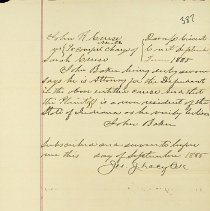 387
John R. Cruse Davis Circuit
vs To compel change of Court September
Sarah Cruse Term 1885
John Baker being duly sworn
says he is Attorney for the Defendant
in the above entitled cause and that
the Plaintiff is a non resident of the
State of Indiana as he verily believes
John Baker
Subscribed and sworn to before
me this day of September 1885
Clk